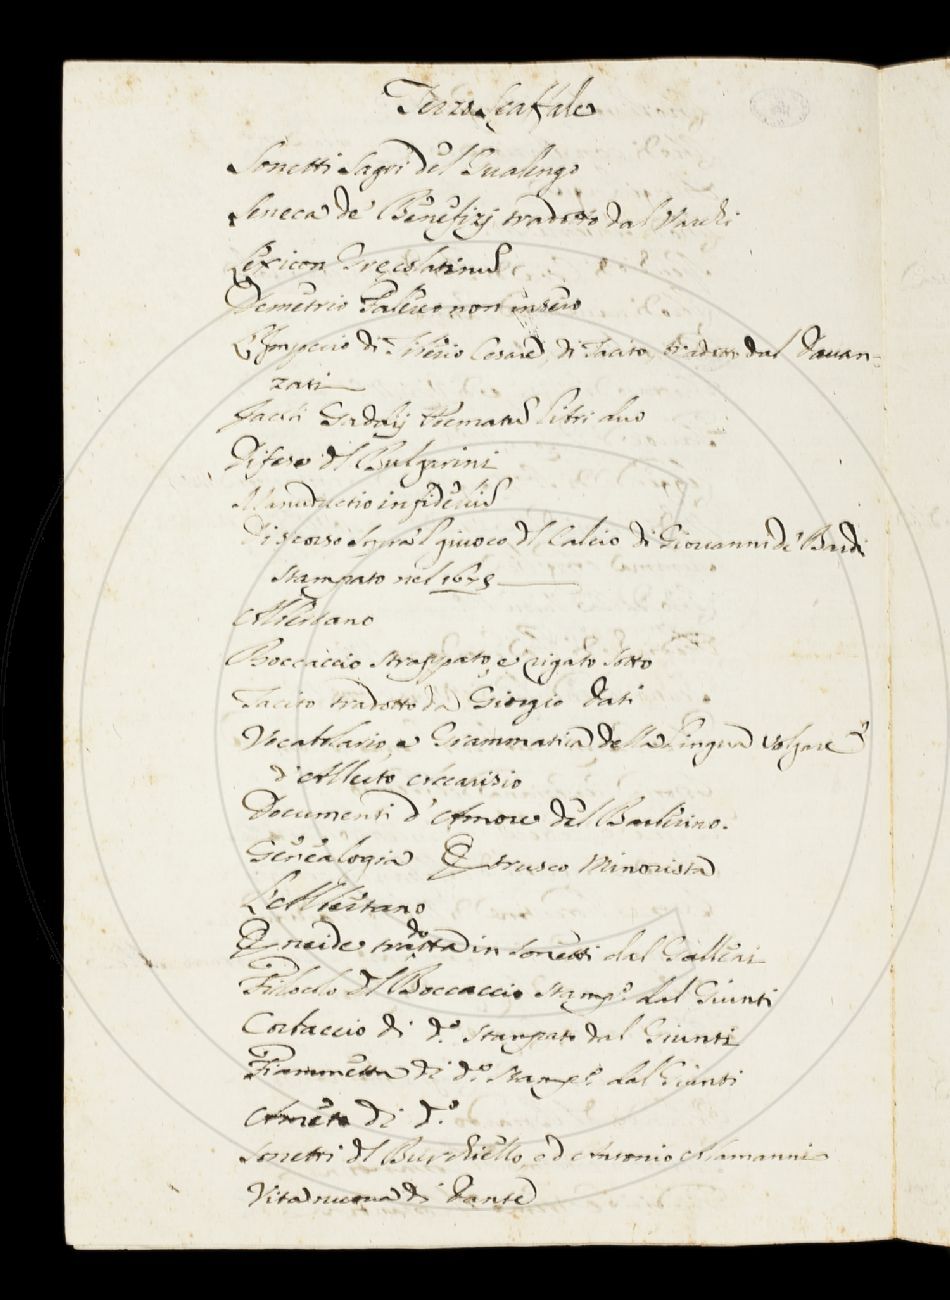 Terzo Scaffale
Sonetti Sagri del Gualengo
Seneca de' Benefizj tradotto dal Varchi
Lexicon Grecolatinus
Demetrio Falereo non intero
L'Imperio di Tiberio Cesare di Tacito tradotto dal Davan-
zati
Gaddij Poematus libri duo
Difese del Bulgarini
Manuductio infidelis
Discorso sopra 'l giuoco del Calcio di Giovanni de' Bardi
stampato nel 1673
Albertano
Boccaccio strappato, e rigato sotto
Tacito tradotto da Giorgio Dati
Vocabolario, e Grammatica della Lingua volgare
d'Alberto Accarisio
Documenti d'Amore del Barberino.
Genealogia Etrusco Minorista
L'Albertano
Eneide tradotta in sonetti dal
Filocolo del Boccaccio stamp.º dal Giunti
Corbaccio di d.º stampato dal Giunti
Fiammetta di d.º stamp.º dal Giunti
Ameto di d.º
Sonetti del Burchiello, ed Antonio Alamanni
Vita nuova di Dante